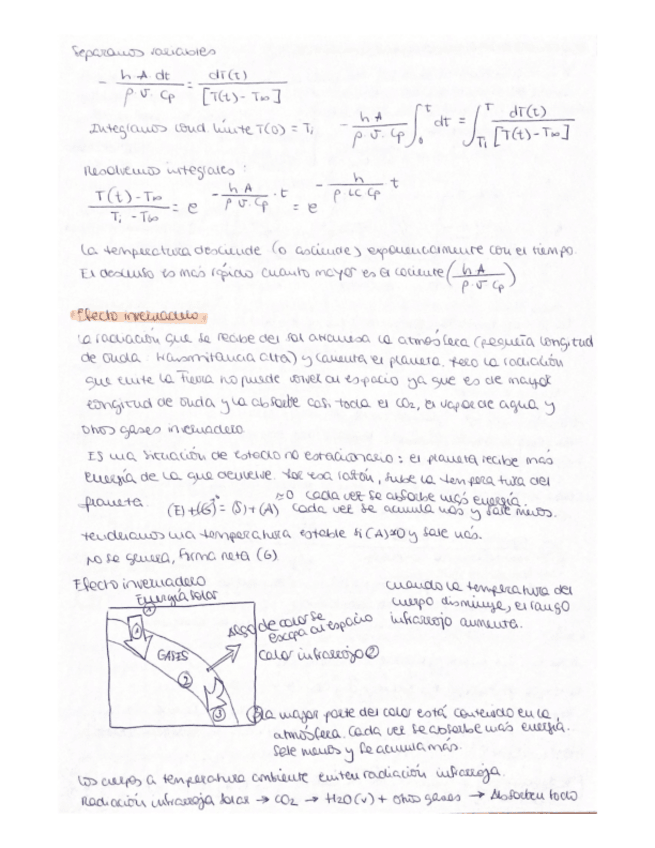 Separamos variables
- h A. dt / ρ V. Cp = dT(t) / [T(t) - T∞]
Integramos cond límite T(0) = Ti   - h A / ρ V. Cp ∫₀ᵗ dt = ∫_Ti^T dT(t) / [T(t) - T∞]
Resolvemos integrales:
T(t) - T∞ / Ti - T∞ = e^(- h A / ρ V. Cp · t) = e^(- h / ρ Lc Cp t)
La temperatura desciende (o asciende) exponencialmente con el tiempo.
El descenso es más rápido cuanto mayor es el cociente (h A / ρ. V Cp)
Efecto invernadero
La radiación que se recibe del sol atraviesa la atmósfera (pequeña longitud
de onda: transmitancia alta) y calienta el planeta. Pero la radiación
que emite la Tierra no puede volver al espacio ya que es de mayor
longitud de onda y la absorbe casi toda el CO₂, el vapor de agua y
otros gases invernadero
Es una situación de estado no estacionario: el planeta recibe más
energía de la que devuelve. Por esa razón, sube la temperatura del
planeta. (E) + (G) = (S) + (A) ≈0 cada vez se absorbe más energía
cada vez se acumula más y sale menos.
tendríamos una temperatura estable si (A)≈0 y sale más.
no se genera, forma neta (G)
Efecto invernadero
Energía solar
①
GASES
②
③
Algo de calor se
escapa al espacio
calor infrarrojo ②
cuando la temperatura del
cuerpo disminuye, el rango
infrarrojo aumenta.
③ La mayor parte del calor está contenido en la
atmósfera. Cada vez se absorbe más energía.
Sale menos y se acumula más.
Los cuerpos a temperatura ambiente emiten radiación infrarroja.
Radiación infrarroja solar → CO₂ → H2O(v) + otros gases → Absorben todo